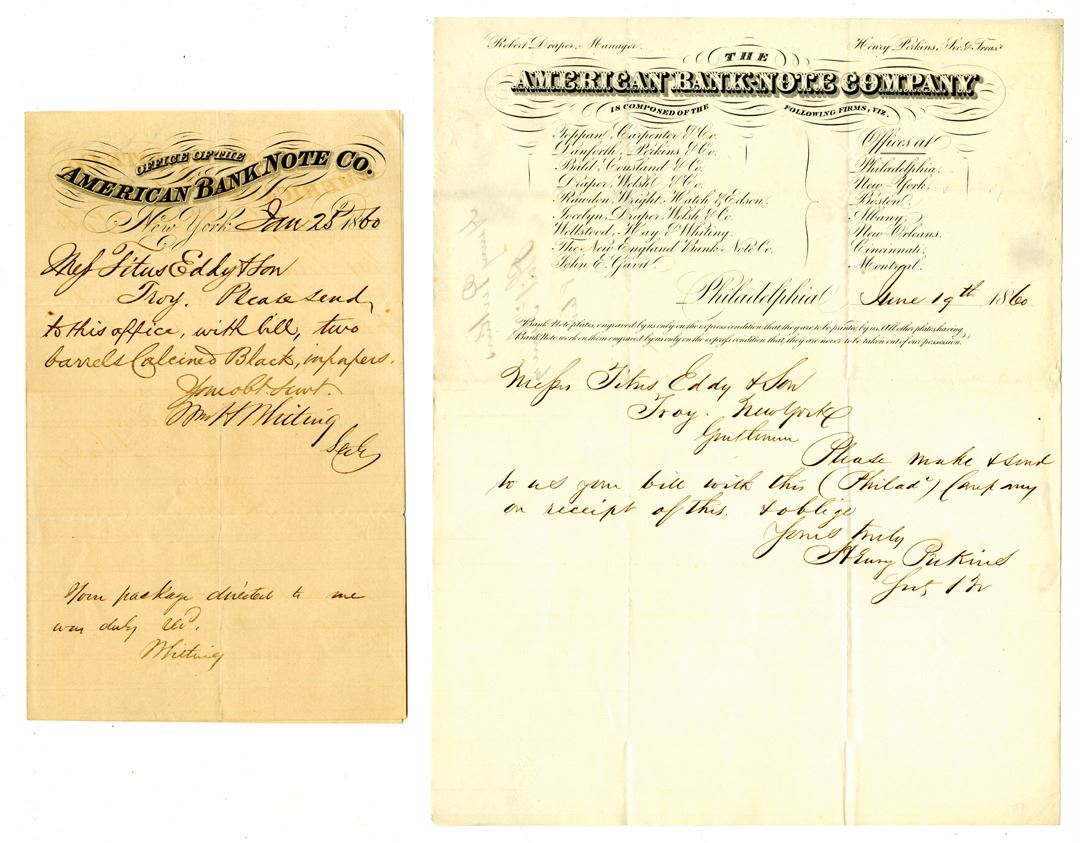 OFFICE OF THE
AMERICAN BANK NOTE CO.
New York Jan 25th 1860
Mess Titus Eddy & Son
Troy. Please send
to this office, with bill, two
barrels Calcined Black, in papers.
Your obt. Servt.
Wm H Whiting
Secy
Your package directed to me
was duly recd.
Whiting
Robert Draper, Manager.
Henry Perkins, Sec. & Treasr.
THE
AMERICAN BANK-NOTE COMPANY
IS COMPOSED OF THE FOLLOWING FIRMS, VIZ.
Toppan, Carpenter & Co.
Danforth, Perkins & Co.
Bald, Cousland & Co.
Draper, Welsh & Co.
Rawdon, Wright, Hatch & Edson.
Jocelyn, Draper, Welsh & Co.
Wellstood, Hay & Whiting.
The New England Bank Note Co.
John E. Gavit.
Offices at
Philadelphia.
New York.
Boston.
Albany.
New Orleans.
Cincinnati.
Montreal.
Philadelphia June 19th 1860
Bank Note plates, engraved by us only on the express condition that they are to be printed by us. All other plates having
Bank Note work on them engraved by us only on the express condition that they are never to be taken out of our possession.
Messrs Titus Eddy & Son
Troy. New York
Gentlemen
Please make & send
to us your bill with this (Philada) Company
on receipt of this. & oblige
Yours truly
Henry Perkins